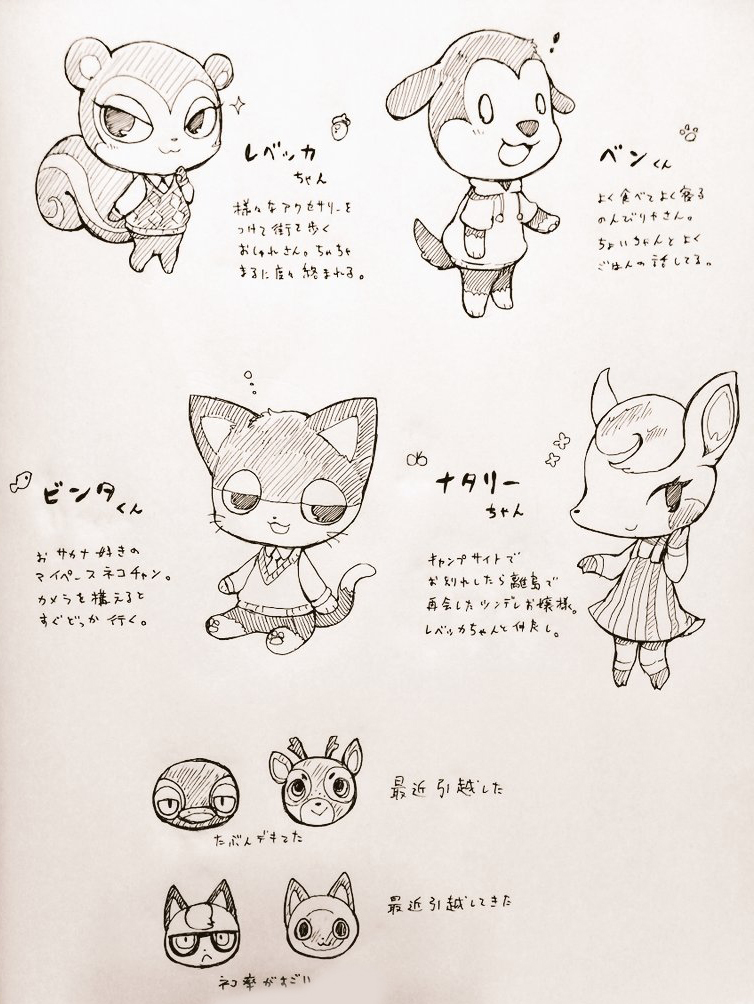 レベッカ
ちゃん
様々なアクセサリーを
つけて街を歩く
おしゃれさん。ちゃちゃ
まるに度々絡まれる。
ベンくん
よく食べてよく寝る
のんびりやさん。
ちょいちゃんとよく
ごはんの話してる。
ビンタくん
おサカナ好きの
マイペースネコチャン。
カメラを構えると
すぐどっか行く。
ナタリー
ちゃん
キャンプサイトで
お別れしたら離島で
再会したツンデレお嬢様。
レベッカちゃんと仲良し。
最近引越した
たぶんデキてた
最近引越してきた
ネコ率がすごい